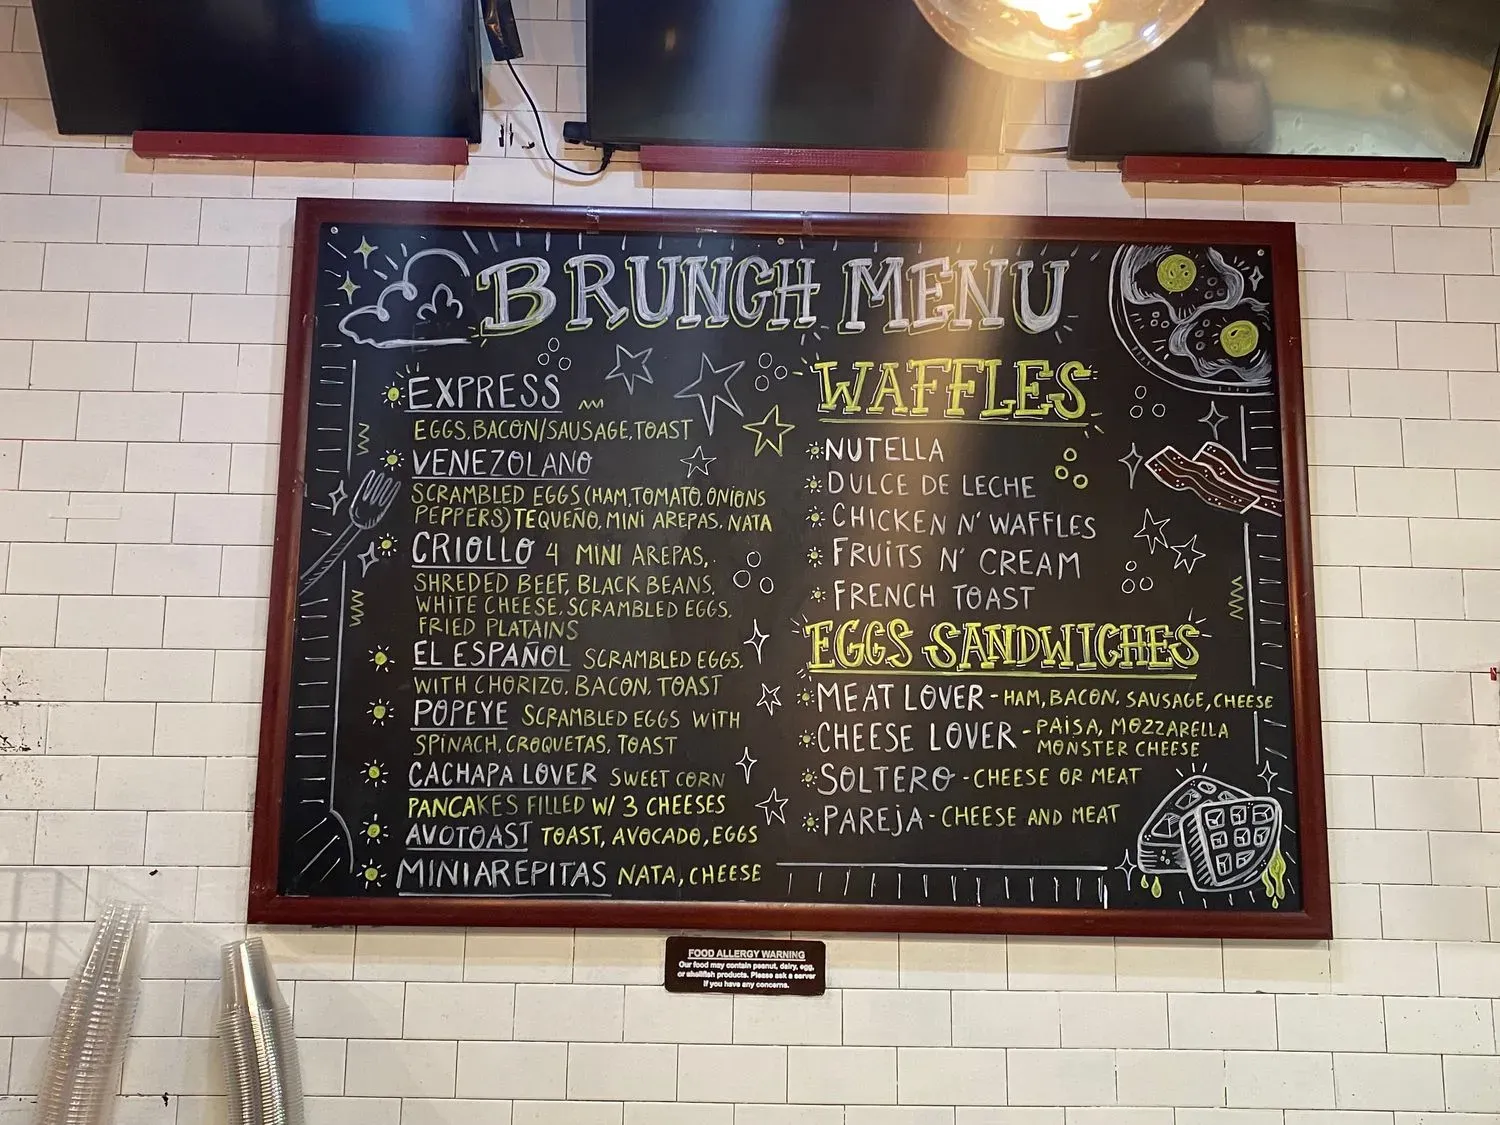 BRUNCH MENU
EXPRESS
EGGS, BACON/SAUSAGE, TOAST
VENEZOLANO
SCRAMBLED EGGS (HAM, TOMATO, ONIONS
PEPPERS) TEQUEÑO, MINI AREPAS, NATA
CRIOLLO 4 MINI AREPAS,
SHREDED BEEF, BLACK BEANS,
WHITE CHEESE, SCRAMBLED EGGS,
FRIED PLATAINS
EL ESPAÑOL SCRAMBLED EGGS,
WITH CHORIZO, BACON, TOAST
POPEYE SCRAMBLED EGGS WITH
SPINACH, CROQUETAS, TOAST
CACHAPA LOVER SWEET CORN
PANCAKES FILLED W/ 3 CHEESES
AVOTOAST TOAST, AVOCADO, EGGS
MINIAREPITAS NATA, CHEESE
WAFFLES
NUTELLA
DULCE DE LECHE
CHICKEN N' WAFFLES
FRUITS N' CREAM
FRENCH TOAST
EGGS SANDWICHES
MEAT LOVER - HAM, BACON, SAUSAGE, CHEESE
CHEESE LOVER - PAISA, MOZZARELLA
MONSTER CHEESE
SOLTERO - CHEESE OR MEAT
PAREJA - CHEESE AND MEAT
FOOD ALLERGY WARNING
Our food may contain peanut, dairy, egg,
or shellfish products. Please ask a server
if you have any concerns.